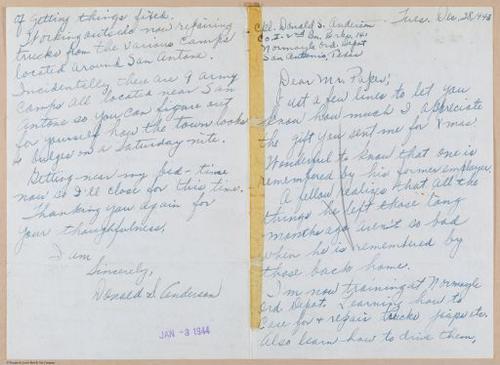 Cpl. Donald S. Anderson
Normoyle Ord. Depot
San Antonio, Texas
Tues. Dec. 28, 1943
Dear Mr. Pape;
Just a few lines to let you
know how much I appreciate
the gift you sent me for Xmas
Wonderful to know that one is
remembered by his former employer.
A fellow realizes that all the
things he left those long
months ago weren't so bad
when he is remembered by
those back home.
I'm now training at Normoyle
Ord Depot. Learning how to
care for & repair trucks jeeps etc.
Also learn how to drive them,
of getting things fixed.
Working outside now repairing
trucks from the various camps
located around San Antone.
Incidentelly, there are 9 army
camps all located near San
Antone so you can figure out
for yourself how the town looks
& bulges on a Saturday nite.
Getting near my bed-time
now so I'll close for this time.
Thanking you again for
your thoughtfulness,
I am
Sincerely,
Donald S. Anderson
JAN -3 1944